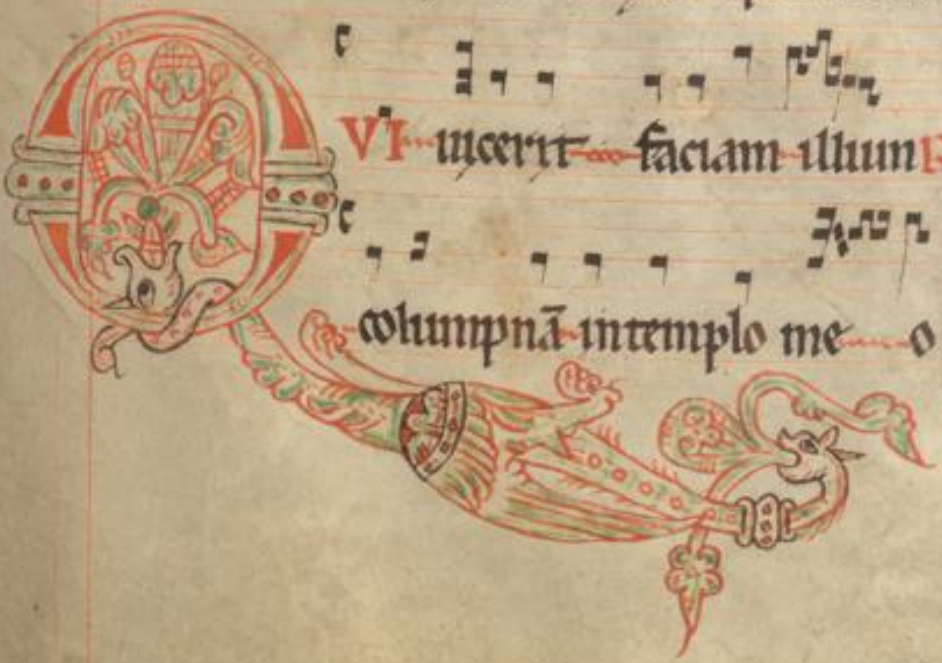 QVI uicerit faciam illum
columpnā in templo me o